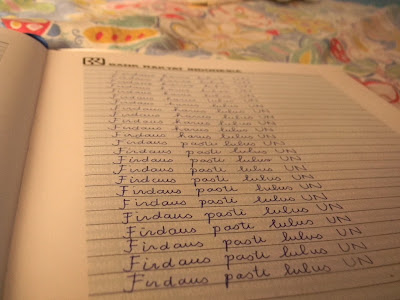 BANK RAKYAT INDONESIA
Firdaus harus lulus UN
Firdaus harus lulus UN
Firdaus harus lulus UN
Firdaus harus lulus UN
Firdaus pasti lulus UN
Firdaus pasti lulus UN
Firdaus pasti lulus UN
Firdaus pasti lulus UN
Firdaus pasti lulus UN
Firdaus pasti lulus UN
Firdaus pasti lulus UN
Firdaus pasti lulus UN
Firdaus pasti lulus UN
Firdaus pasti lulus UN
Firdaus pasti lulus UN